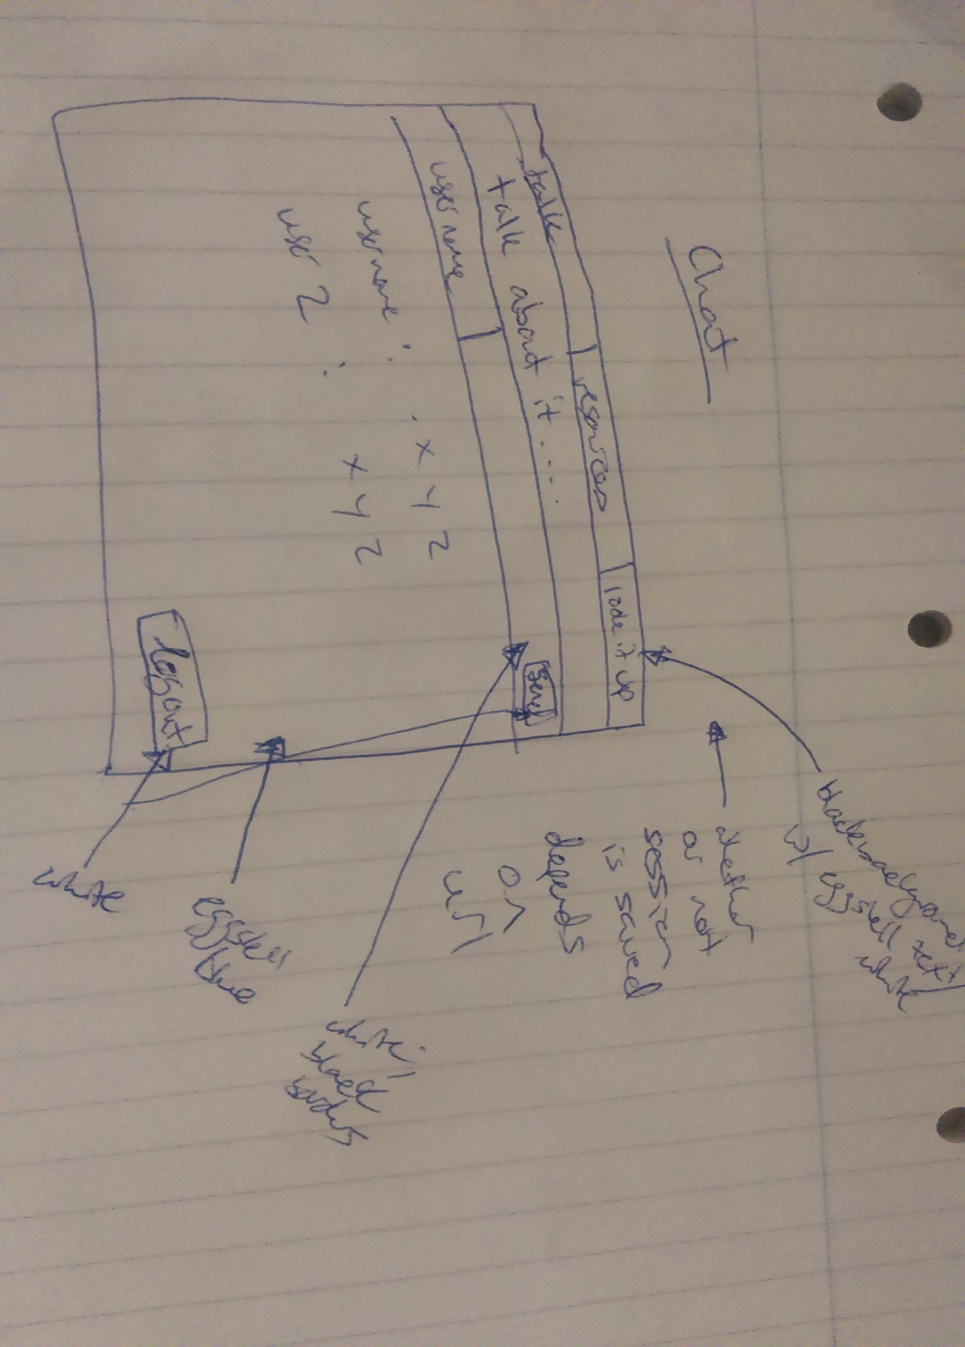 Chat
talk resources lode it up
talk about it....
Send
username
username: x y z
user 2 : x y z
logout
w/ eggshell text/
white
whether
or not
session
is saved
depends
on
url
white,
borders
eggshell
blue
white